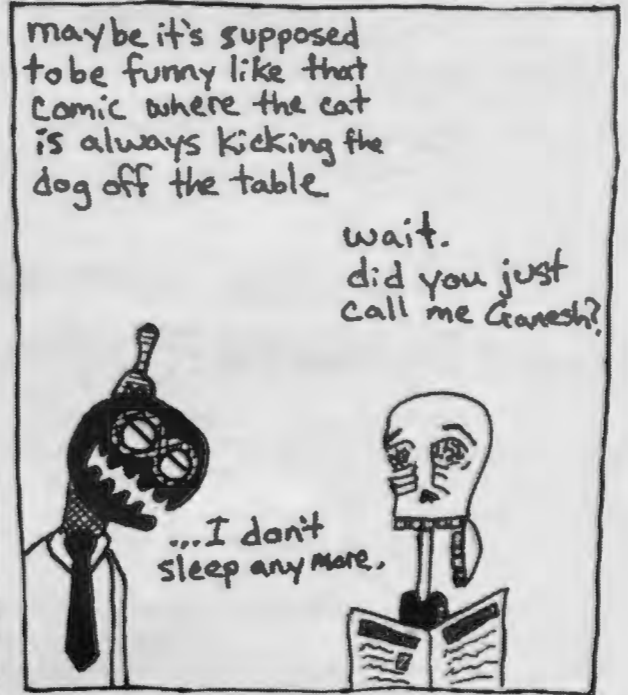 maybe it's supposed
to be funny like that
comic where the cat
is always kicking the
dog off the table
wait.
did you just
call me Ganesh?
...I don't
sleep anymore.